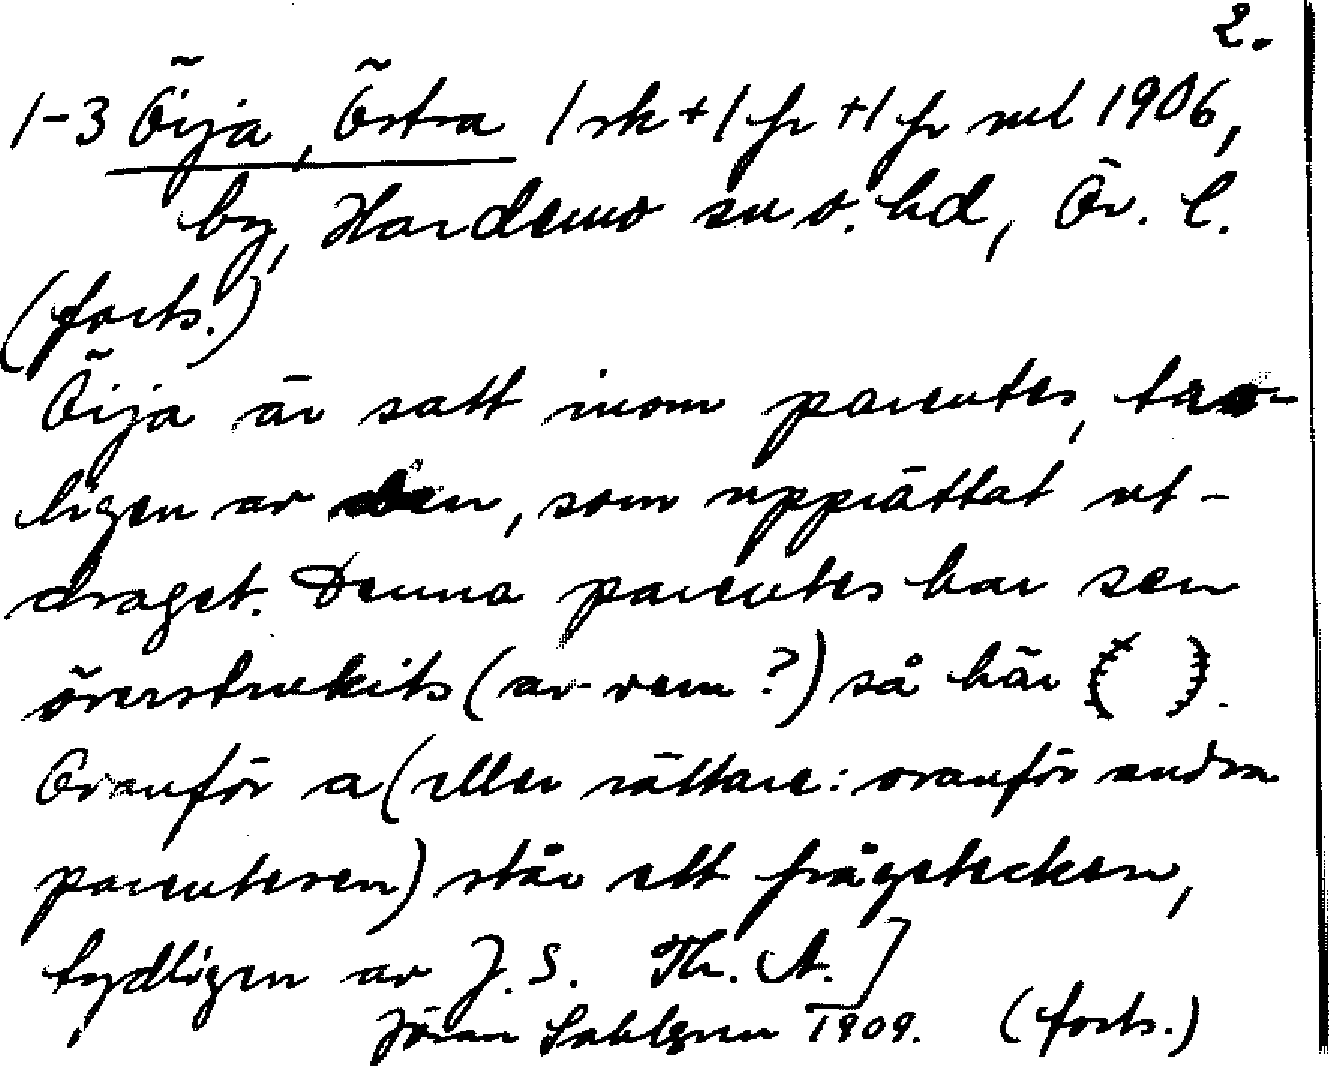 2.
1-3 Öija, Östra 1 sk + 1 fr + 1 fr ml 1906,
by, Hardemo sn o. hd, Ör. l.
(forts.)
Öija är satt inom parentes, tro-
ligen av den, som upprättat ut-
draget. Denna parentes har sen
överstrukits (av vem?) så här ( ).
Ovanför a (eller rättare: ovanför andra
parentesen) står ett frågetecken,
tydligen av J. S. Th. A.]
Jöran Sahlgren 1909. (forts.)